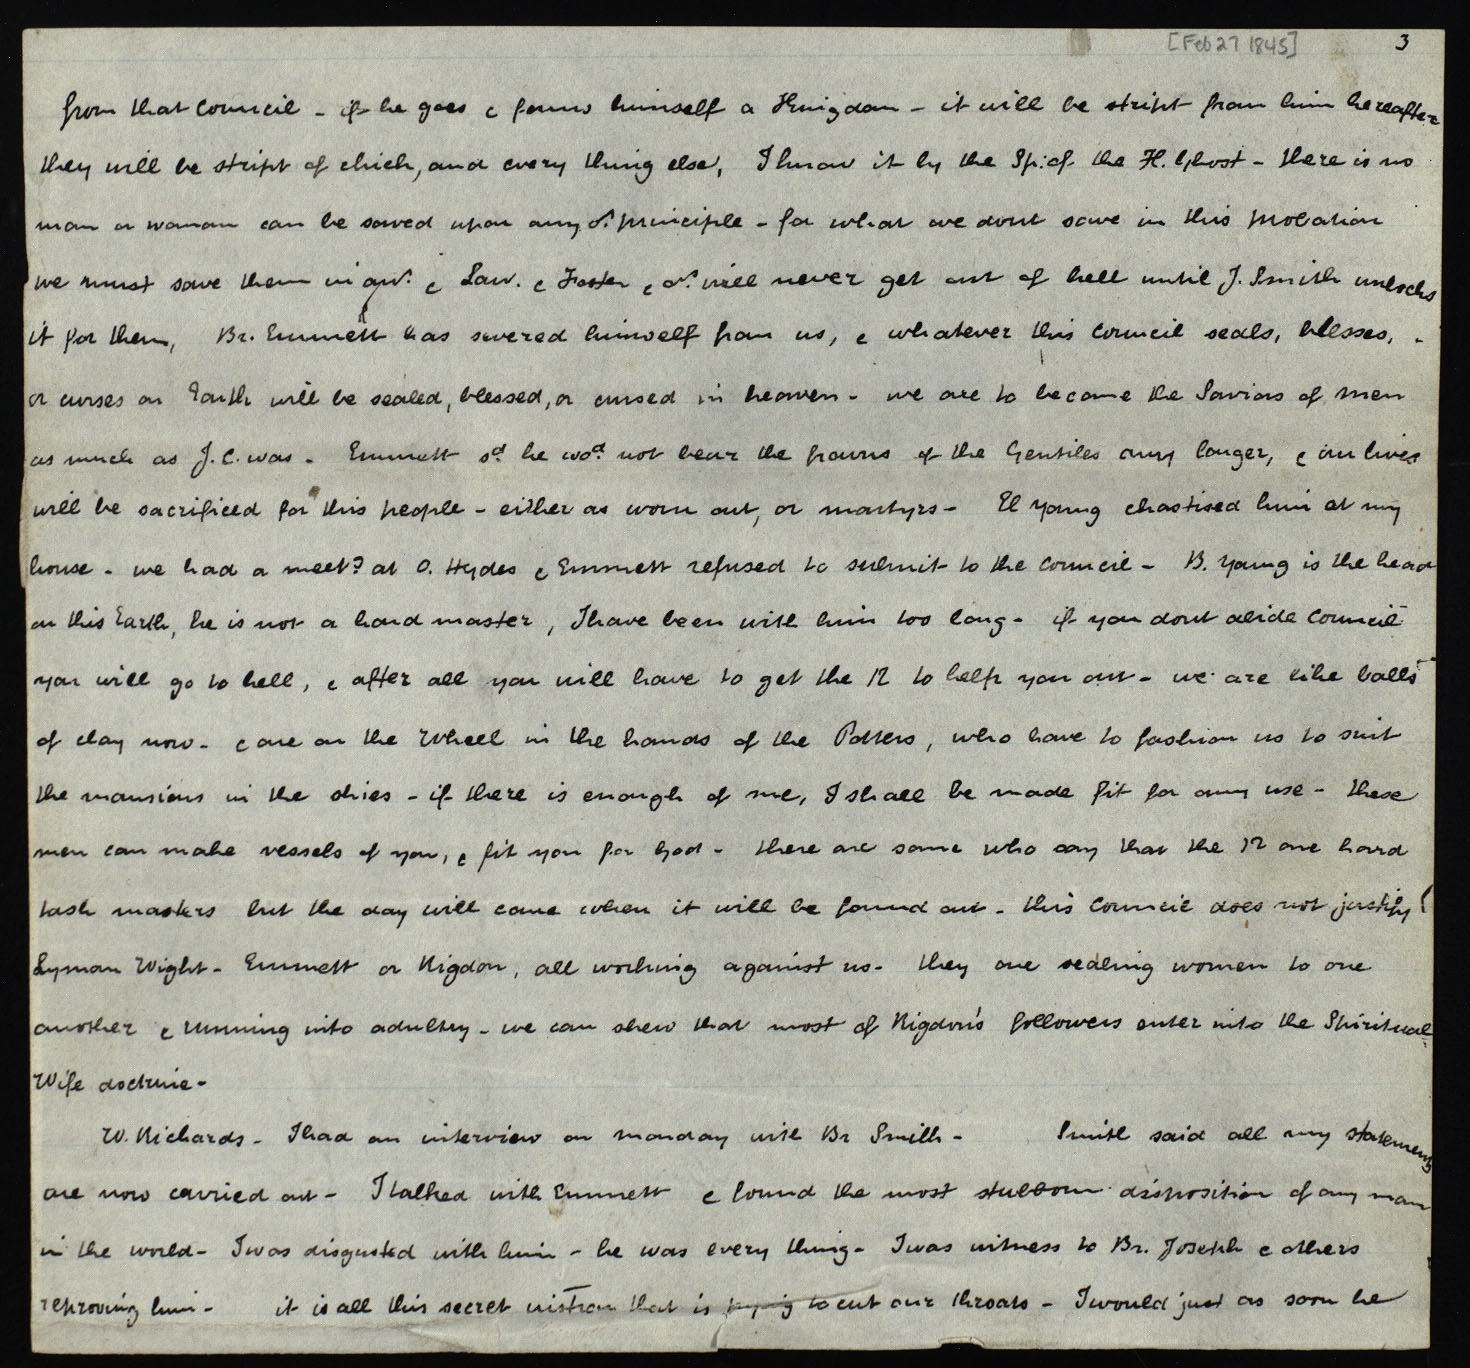 [Feb 27 1845] 3
from that Council - if he goes & forms himself a Kingdom - it will be stript from him hereafter
they will be stript of chick, and every thing else, I know it by the Sp: of the H. Ghost - there is no
man or woman can be saved upon any or. principle - for what we dont save in this probation
we must save them in anr. & Law. & Foster & or. will never get out of hell until J. Smith unlocks
it for them, Br. Emmett has severed himself from us, & whatever this council seals, blesses,
or curses on Earth will be sealed, blessed, or cursed in heaven - we are to become the Saviors of men
as much as J.C. was - Emmett sd. he wod. not bear the frowns of the Gentiles any longer, & our lives
will be sacrificed for this people - either as worn out, or martyrs - El Young chastised him at my
house - we had a meetg at O. Hydes & Emmett refused to submit to the council - B. Young is the head
on this Earth, he is not a hard master, I have been with him too long - if you dont abide council
you will go to hell, & after all you will have to get the 12 to help you out - we are like balls
of clay now - & are on the Wheel in the hands of the Potters, who have to fashion us to suit
the mansions in the skies - if there is enough of me, I shall be made fit for any use - these
men can make vessels of you, & fit you for God - there are some who say that the 12 are hard
task masters but the day will come when it will be found out - this council does not justify
Lyman Wight - Emmett or Rigdon, all working against us - they are sealing women to one
another & running into adultery - we can shew that most of Rigdon's followers enter into the Spiritual
Wife doctrine -
W. Richards - I had an interview on monday with Br Smith - Smith said all my statements
are now carried out - I talked with Emmett & found the most stubborn disposition of any man
in the world - I was disgusted with him - he was every thing - I was witness to Br. Joseph & others
reproving him - it is all this secret that is trying to cut our throats - I would just as soon be